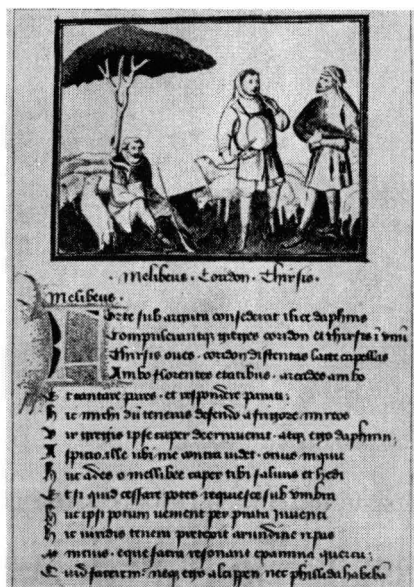 · Melibeus · Coridon · Thirsis ·
Melibeus ·
Forte sub arguta consederat ilice daphnis
Compulerantq; greges coridon et thirsis i unũ
Thirsis oues · coridon distentas lacte capellas
Ambo florentes etatibus · arcades ambo
Et cantare pares · et respondere parati ·
Huc michi dũ teneras defendo a frigore mirtos
Vir gregis ipse caper deerrauerat · atq; ego daphnim
Aspicio · ille ubi me contra uidet · ocius inquit
Huc ades o mellibee caper tibi saluus et hedi
Et si quid cessare potes requiesce sub umbra
Huc ipsi potum uenient per prata iuuenci
Hic uiridis tenera pretexit arundine ripas
Mincius · eque sacra resonant examina quercu ·
Quid facerem · neq; ego alcippen nec phillida habebã